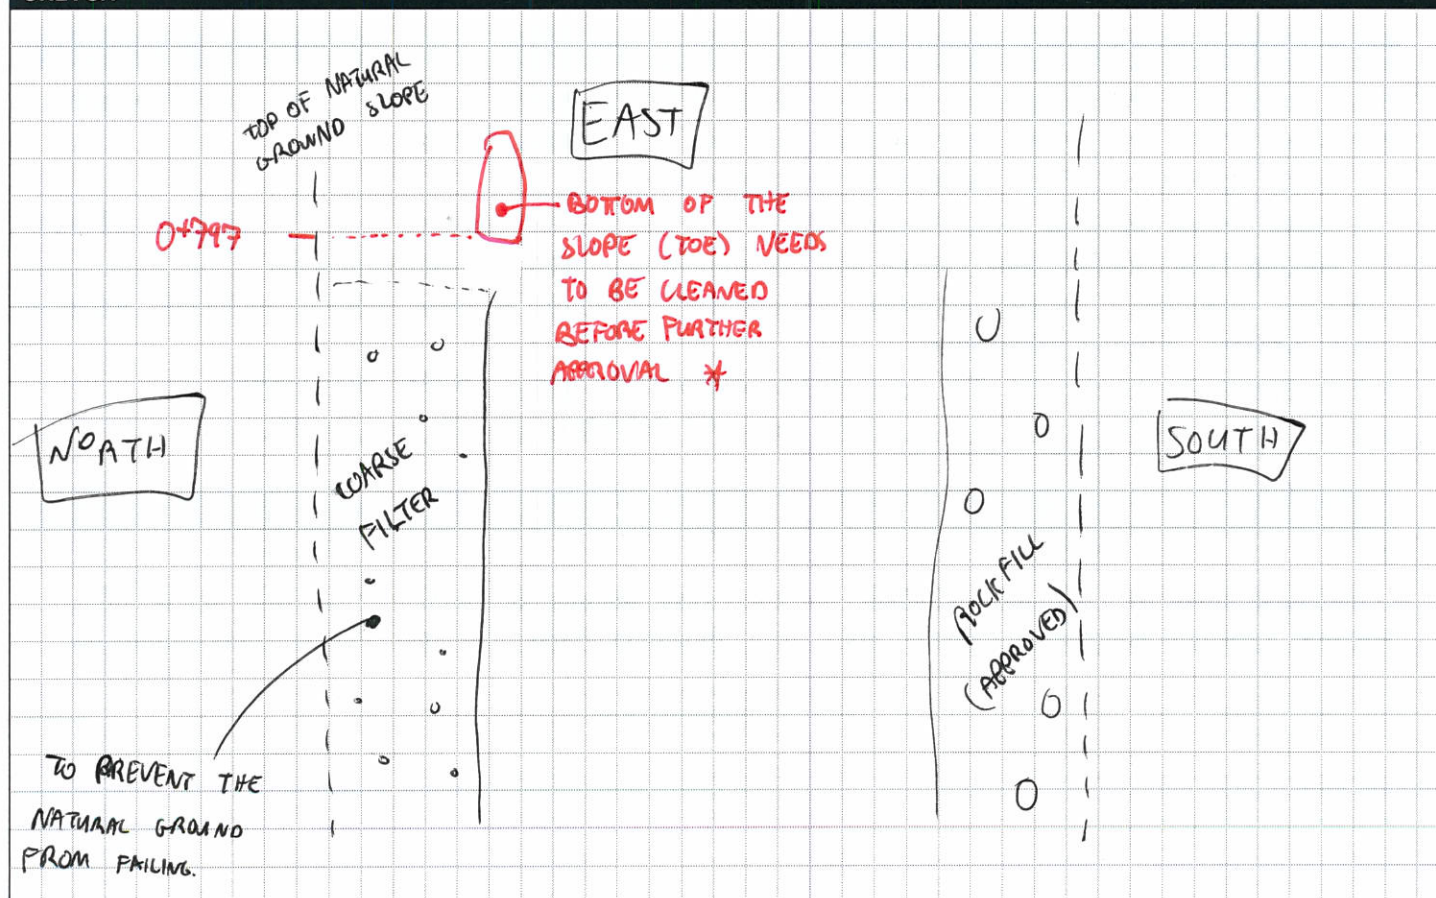 TOP OF NATURAL
GROUND SLOPE
EAST
0+797
BOTTOM OF THE
SLOPE (TOE) NEEDS
TO BE CLEANED
BEFORE FURTHER
APPROVAL *
NORTH
COARSE
FILTER
SOUTH
ROCKFILL
(APPROVED)
TO PREVENT THE
NATURAL GROUND
FROM FAILING.